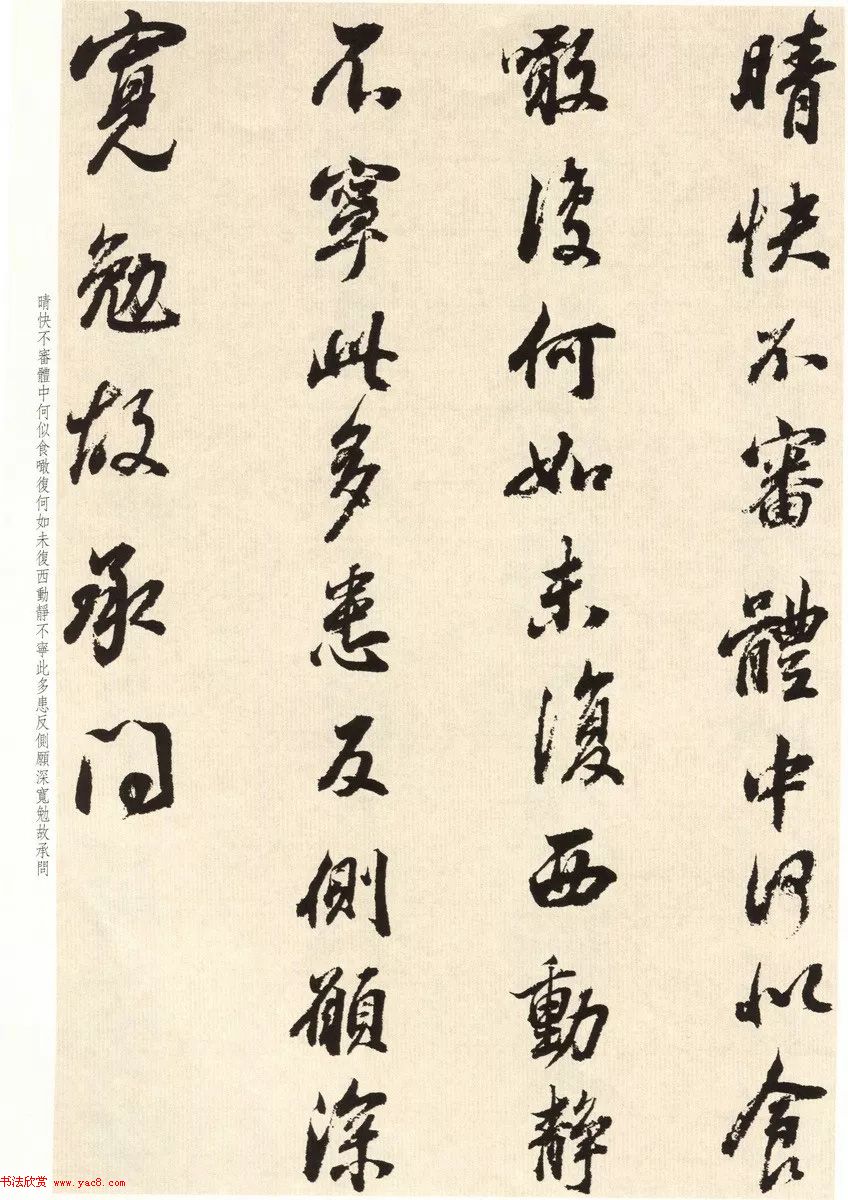 晴快不審體中何似食
噉復何如未復西動靜
不寧此多患反側願深
寬勉故承問
晴快不審體中何似食噉復何如未復西動靜不寧此多患反側願深寬勉故承問
书法欣赏 www.yac8.com